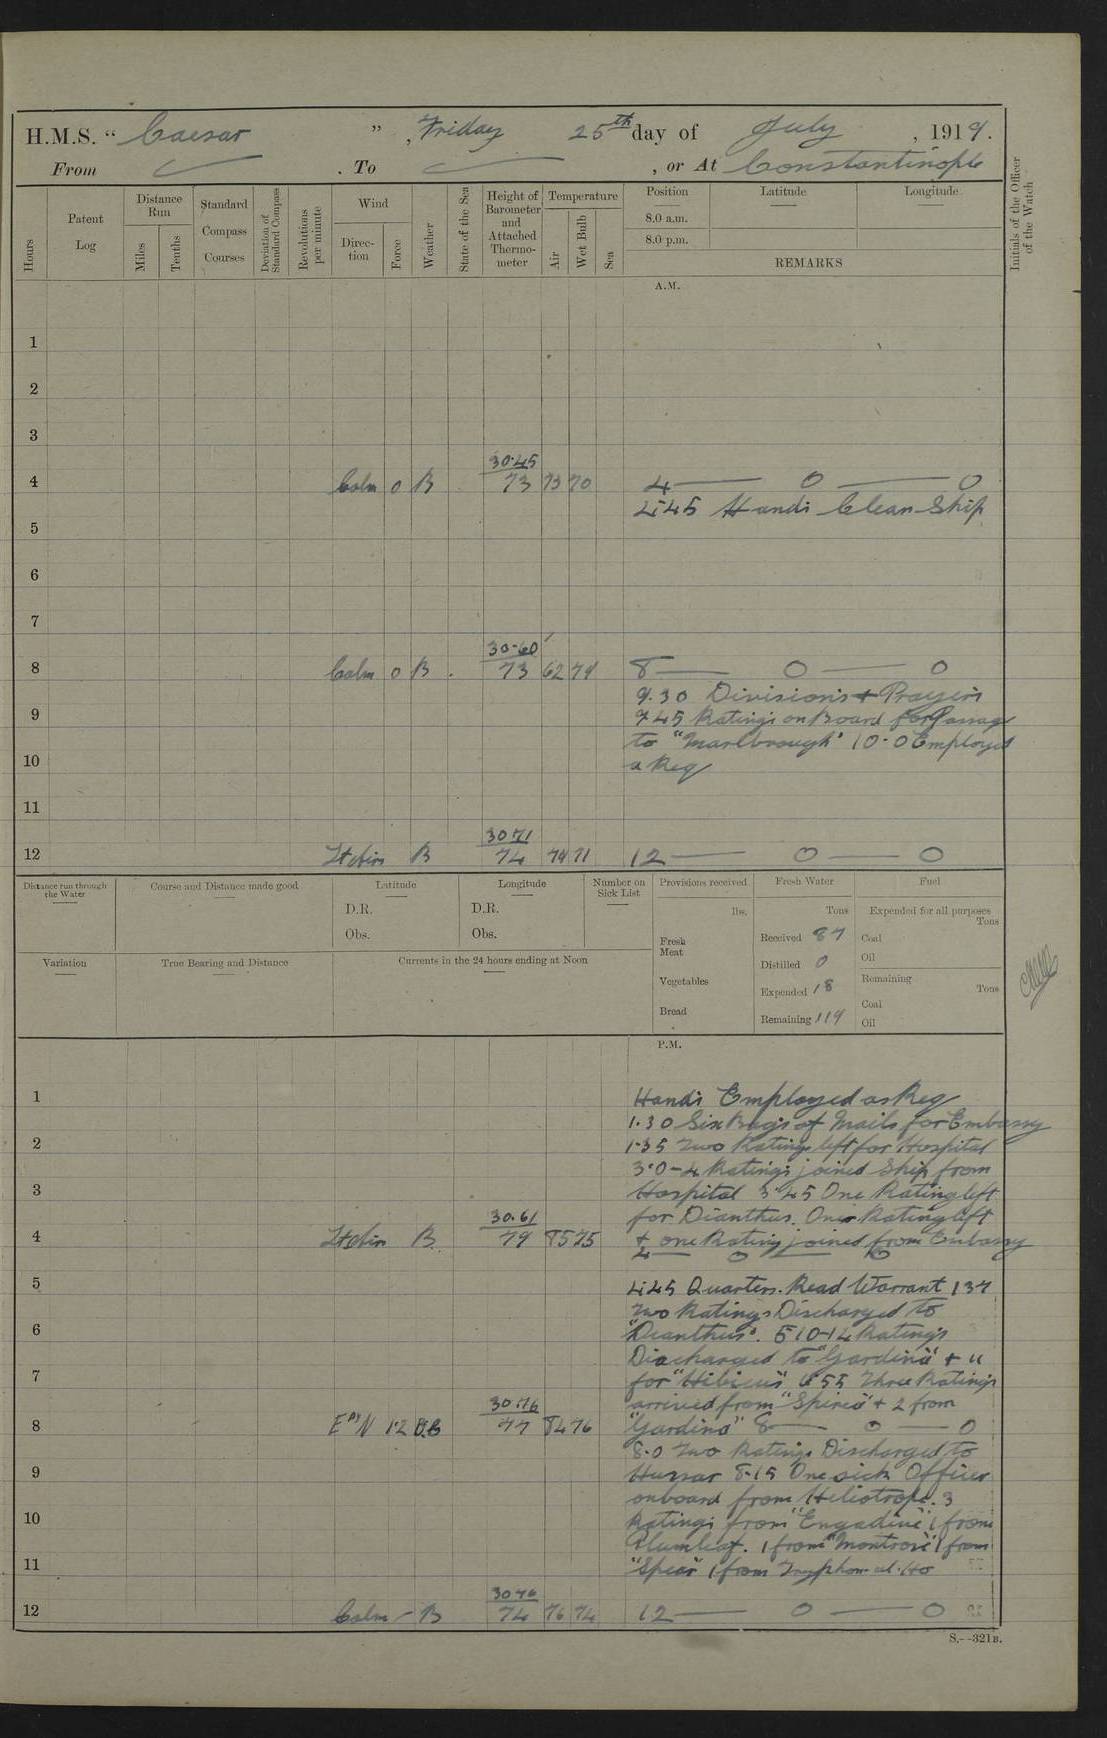 H.M.S. "Caesar", Friday 25th day of July, 1919.
From . To , or At Constantinople
Hours
Patent Log
Distance Run
Miles
Tenths
Standard Compass Courses
Deviation of Standard Compass
Revolutions per minute
Wind
Direction
Force
Weather
State of the Sea
Height of Barometer and Attached Thermometer
Temperature
Air
Wet Bulb
Sea
Position Latitude Longitude
8.0 a.m.
8.0 p.m.
REMARKS
Initials of the Officer of the Watch
A.M.
1
2
3
30.45
4 Calm 0 B 73 73 70 4 — 0 — 0
4.45 Hands Clean Ship
5
6
7
30.60
8 Calm 0 B 73 62 74 8 — 0 — 0
9.30 Divisions + Prayers
9 9.45 Ratings on Board for Passage
to "Marlbrough" 10.0 Employed
10 a Req
11
30 71
12 Lt Airs B 74 74 71 12 — 0 — 0
Distance run through the Water
Course and Distance made good
Latitude
D.R.
Obs.
Longitude
D.R.
Obs.
Number on Sick List
Provisions received
lbs.
Fresh Meat
Vegetables
Bread
Fresh Water
Tons
Received 87
Distilled 0
Expended 18
Remaining 119
Fuel
Expended for all purposes
Tons
Coal
Oil
Remaining
Tons
Coal
Oil
Variation
True Bearing and Distance
Currents in the 24 hours ending at Noon
P.M.
1 Hands Employed as Req
1.30 Six Bags of Mails for Embassy
2 1.35 Two Ratings left for Hospital
3.0 - 4 Ratings joined Ship from
3 Hospital 3.45 One Rating left
30.61 for Dianthus. One Rating left
4 Lt Airs B 79 85 75 + one Rating joined from Embassy
4 — 0 — 0
5 4.45 Quarters. Read Warrant 137
Two Ratings Discharged to
6 "Dianthus". 5 10-14 Ratings
Discharged to "Gardinia" + 11
7 for "Hibicus" 6.55 Three Ratings
30.76 arrived from "Spirea" + 2 from
8 E by N 1.2 B.B 77 84 76 "Gardina" 8 — 0 — 0
8.0 Two Ratings Discharged to
9 Hussar 8.15 One sick Officer
onboard from Heliotrope. 3
10 Ratings from "Engadine" 1 from
Plumleaf. 1 from "Montrose" 1 from
11 "Spear" 1 from Tryphon
30 76
12 Calm - B 74 76 74 12 — 0 — 0
S.--321B.